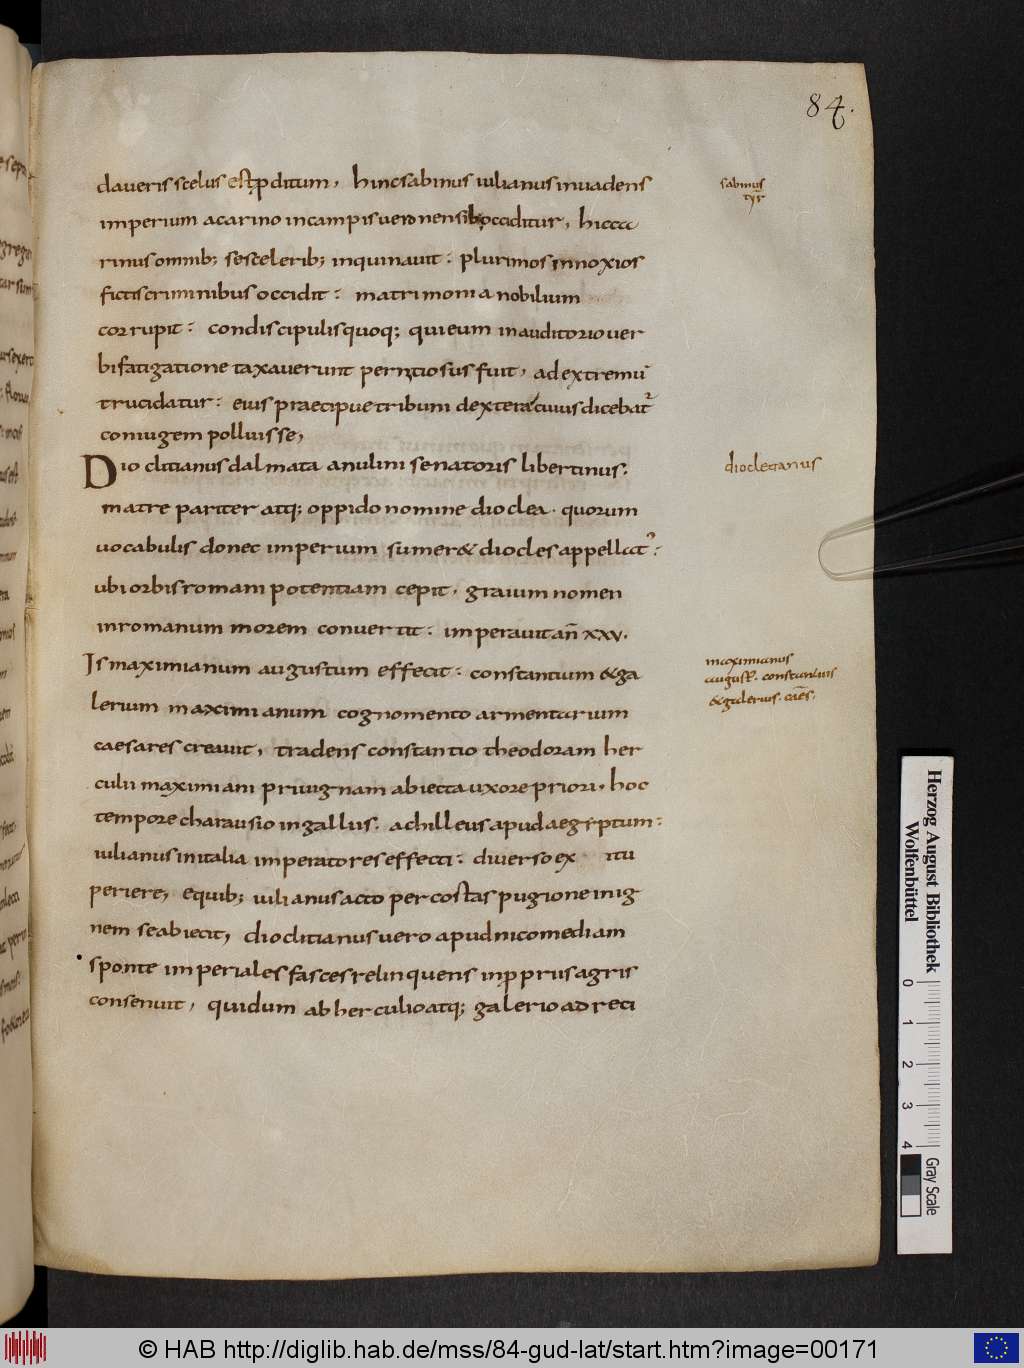 84.
daveris scelus est pditum, hinc sabinus iulianus invadens
sabinus
tyr
imperium a carino in campis veronensib; occiditur, hic ca
rinus omnib; se sceleribus; inquinavit: plurimos innoxios
fictis criminibus occidit: matrimonia nobilium
corrupit: condiscipulis quoq; qui eum in auditorio ver
bi fatigatione taxaverunt perniciosus fuit, ad extremū
trucidatur: eius praecipue tribuni dextera cuius dicebat
coniugem polluisse,
Dioclitianus dalmata anulini senatoris libertinus.
dioclecianus
matre pariter atq; oppido nomine dioclea. quorum
vocabulis donec imperium sumer& diocles appellat:
ubi orbis romani potentiam cepit. graium nomen
in romanum morem convertit: imperavit an̄ xxv.
Is maximianum augustum effecit: constantium &ga
maximianus
august. constantius
& galerius. caes.
lerium maximianum cognomento armentarium
caesares creavit, tradens constantio theodoram her
culii maximiani privignam abiecta uxore priori, hoc
tempore charausio in gallus. achilleus apud aegeptum:
iulianus in italia imperatores effecti: diverso ex itu
periere, equib; iulianus acto per costas pugione in ig
nem se abiecit, dioclitianus vero apud nicomediam
sponte imperiales fasces relinquens in pprus agris
consenuit, qui dum ab herculio atq; galerio ad reci
Herzog August Bibliothek
Wolfenbüttel
0 1 2 3 4
Gray Scale
© HAB http://diglib.hab.de/mss/84-gud-lat/start.htm?image=00171